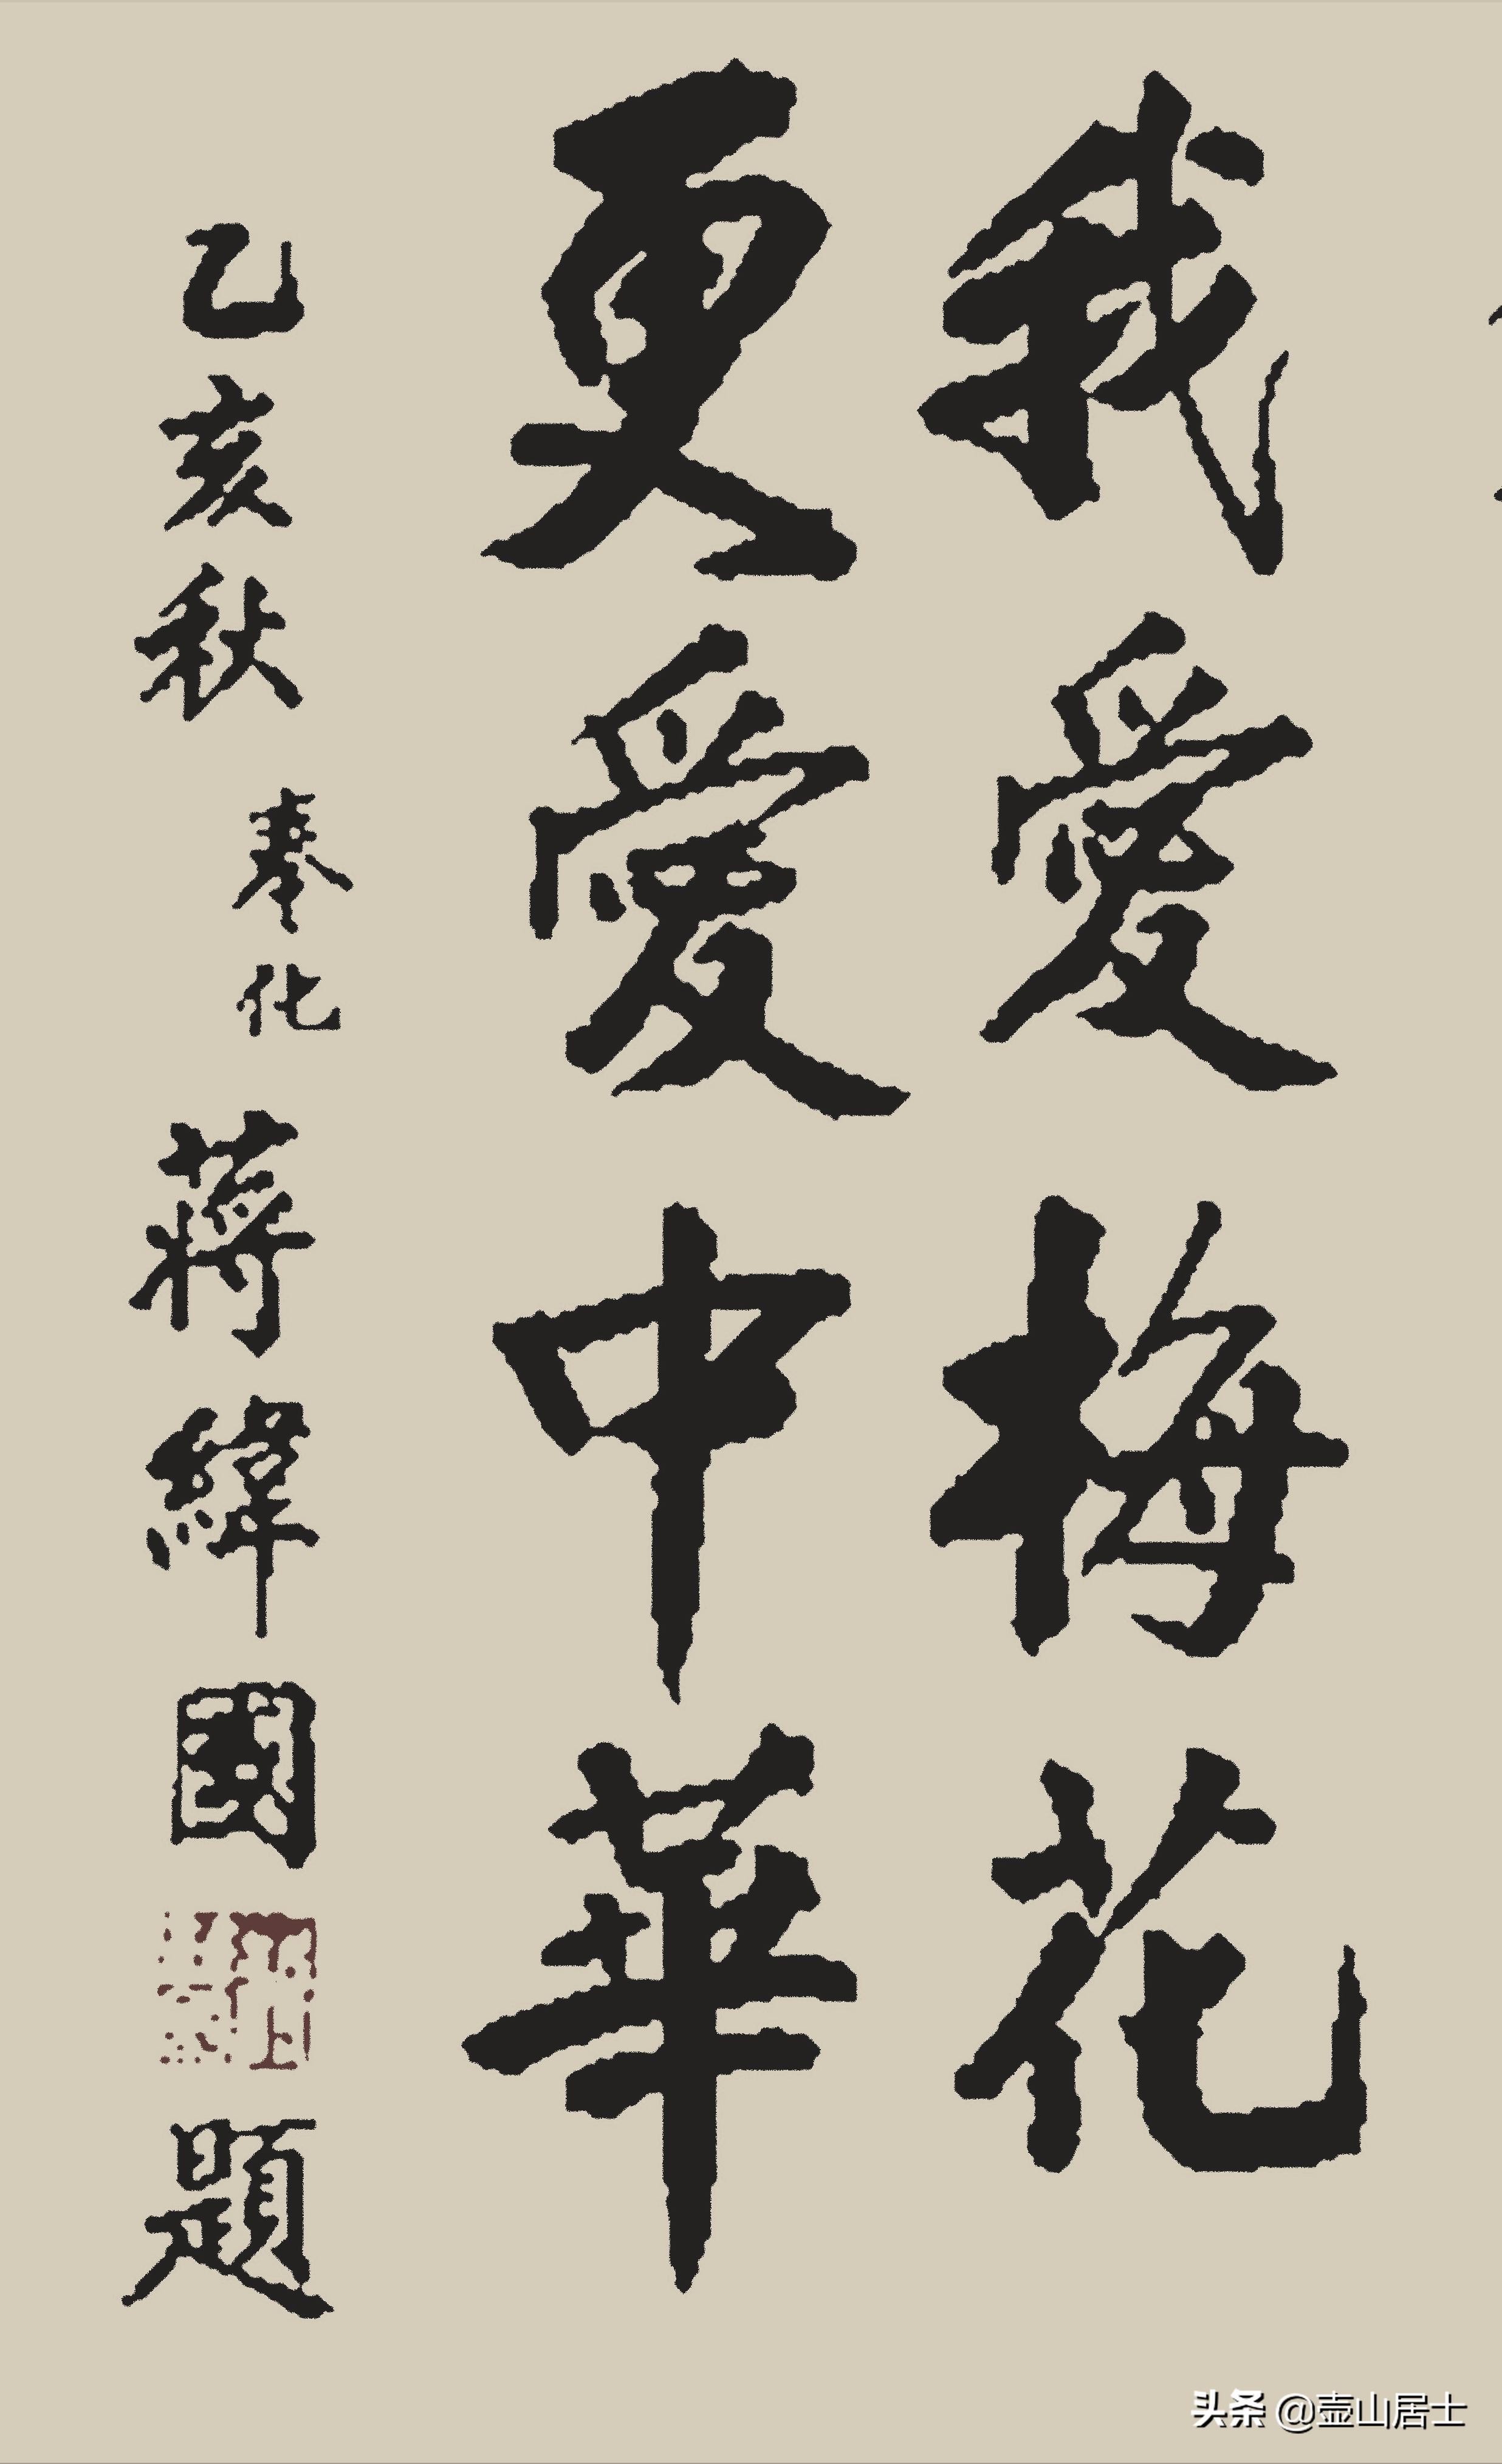 我愛梅花
更愛中華
乙亥秋 奉化 蔣緯國 題
头条 @壶山居士